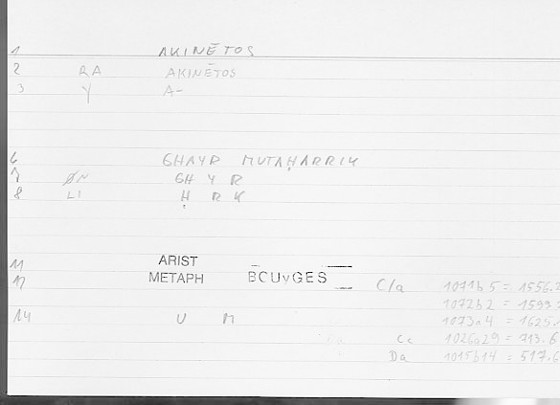 1 AKINĒTOS
2 RA AKINĒTOS
3 Y A-
6 GHAYR MUTAḤARRIK
7 ØN GH Y R
8 LI Ḥ R K
11 ARIST
12 METAPH BCUVGES C/a 1071b5 = 1556.
1072b2 = 1599.
14 U M 1073a4 = 1625.
Cc 1026a29 = 713.6
Da 1015b14 = 517.6